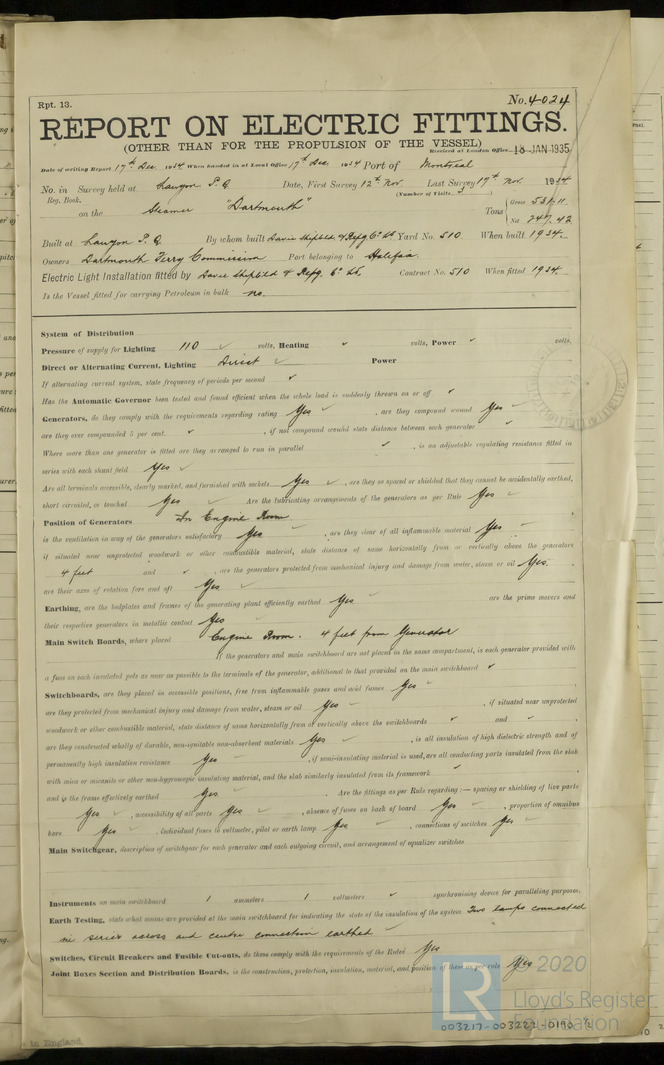 Rpt. 13.
No. 4024
REPORT ON ELECTRIC FITTINGS.
(OTHER THAN FOR THE PROPULSION OF THE VESSEL)
Received at London Office 18 JAN 1935
Date of writing Report 17th Dec. 1934 When handed in at Local Office 17th Dec. 1934 Port of Montreal
No. in Survey held at Lauzon P. Q. Date, First Survey 12th Nov. Last Survey 17th Nov. 1934
Reg. Book. (Number of Visits 3)
on the Steamer "Dartmouth" Tons Gross 531.11
Net 247.42
Built at Lauzon P. Q. By whom built Davie Shipbld & Repg Co Ld Yard No. 510 When built 1934.
Owners Dartmouth Ferry Commission Port belonging to Halifax.
Electric Light Installation fitted by Davie Shipbld & Repg. Co. Ld. Contract No. 510 When fitted 1934.
Is the Vessel fitted for carrying Petroleum in bulk no.
System of Distribution
Pressure of supply for Lighting 110 ✓ volts, Heating ✓ volts, Power ✓ volts.
Direct or Alternating Current, Lighting Direct ✓ Power
If alternating current system, state frequency of periods per second ✓
Has the Automatic Governor been tested and found efficient when the whole load is suddenly thrown on or off ✓
Generators, do they comply with the requirements regarding rating Yes ✓, are they compound wound Yes ✓
are they over compounded 5 per cent. ✓, if not compound wound state distance between each generator ✓
Where more than one generator is fitted are they arranged to run in parallel ✓, is an adjustable regulating resistance fitted in
series with each shunt field Yes ✓
Are all terminals accessible, clearly marked, and furnished with sockets Yes ✓, are they so spaced or shielded that they cannot be accidentally earthed,
short circuited, or touched Yes ✓ Are the lubricating arrangements of the generators as per Rule Yes ✓
Position of Generators In Engine Room
is the ventilation in way of the generators satisfactory Yes ✓, are they clear of all inflammable material Yes ✓
if situated near unprotected woodwork or other combustible material, state distance of same horizontally from or vertically above the generators
4 feet and ✓, are the generators protected from mechanical injury and damage from water, steam or oil Yes.
are their axes of rotation fore and aft Yes ✓
Earthing, are the bedplates and frames of the generating plant efficiently earthed Yes ✓ are the prime movers and
their respective generators in metallic contact Yes ✓
Main Switch Boards, where placed Engine Room. 4 feet from Generator
If the generators and main switchboard are not placed in the same compartment, is each generator provided with
a fuse on each insulated pole as near as possible to the terminals of the generator, additional to that provided on the main switchboard ✓
Switchboards, are they placed in accessible positions, free from inflammable gases and acid fumes Yes ✓
are they protected from mechanical injury and damage from water, steam or oil Yes ✓, if situated near unprotected
woodwork or other combustible material, state distance of same horizontally from or vertically above the switchboards ✓ and ✓,
are they constructed wholly of durable, non-ignitable non-absorbent materials Yes ✓, is all insulation of high dielectric strength and of
permanently high insulation resistance Yes ✓, if semi-insulating material is used, are all conducting parts insulated from the slab
with mica or micanite or other non-hygroscopic insulating material, and the slab similarly insulated from its framework ✓
and is the frame effectively earthed Yes ✓. Are the fittings as per Rule regarding :— spacing or shielding of live parts
Yes ✓, accessibility of all parts Yes ✓, absence of fuses on back of board Yes ✓, proportion of omnibus
bars Yes ✓, individual fuses to voltmeter, pilot or earth lamp Yes ✓, connections of switches Yes ✓
Main Switchgear, description of switchgear for each generator and each outgoing circuit, and arrangement of equalizer switches
Instruments on main switchboard 1 ammeters 1 voltmeters ✓ synchronising device for paralleling purposes.
Earth Testing, state what means are provided at the main switchboard for indicating the state of the insulation of the system Two lamps connected
in series across and centre connection earthed ✓
Switches, Circuit Breakers and Fusible Cut-outs, do these comply with the requirements of the Rules Yes
Joint Boxes Section and Distribution Boards, is the construction, protection, insulation, material, and position of these as per rule Yes ✓
© 2020
LR
Lloyd's Register
Foundation
in England